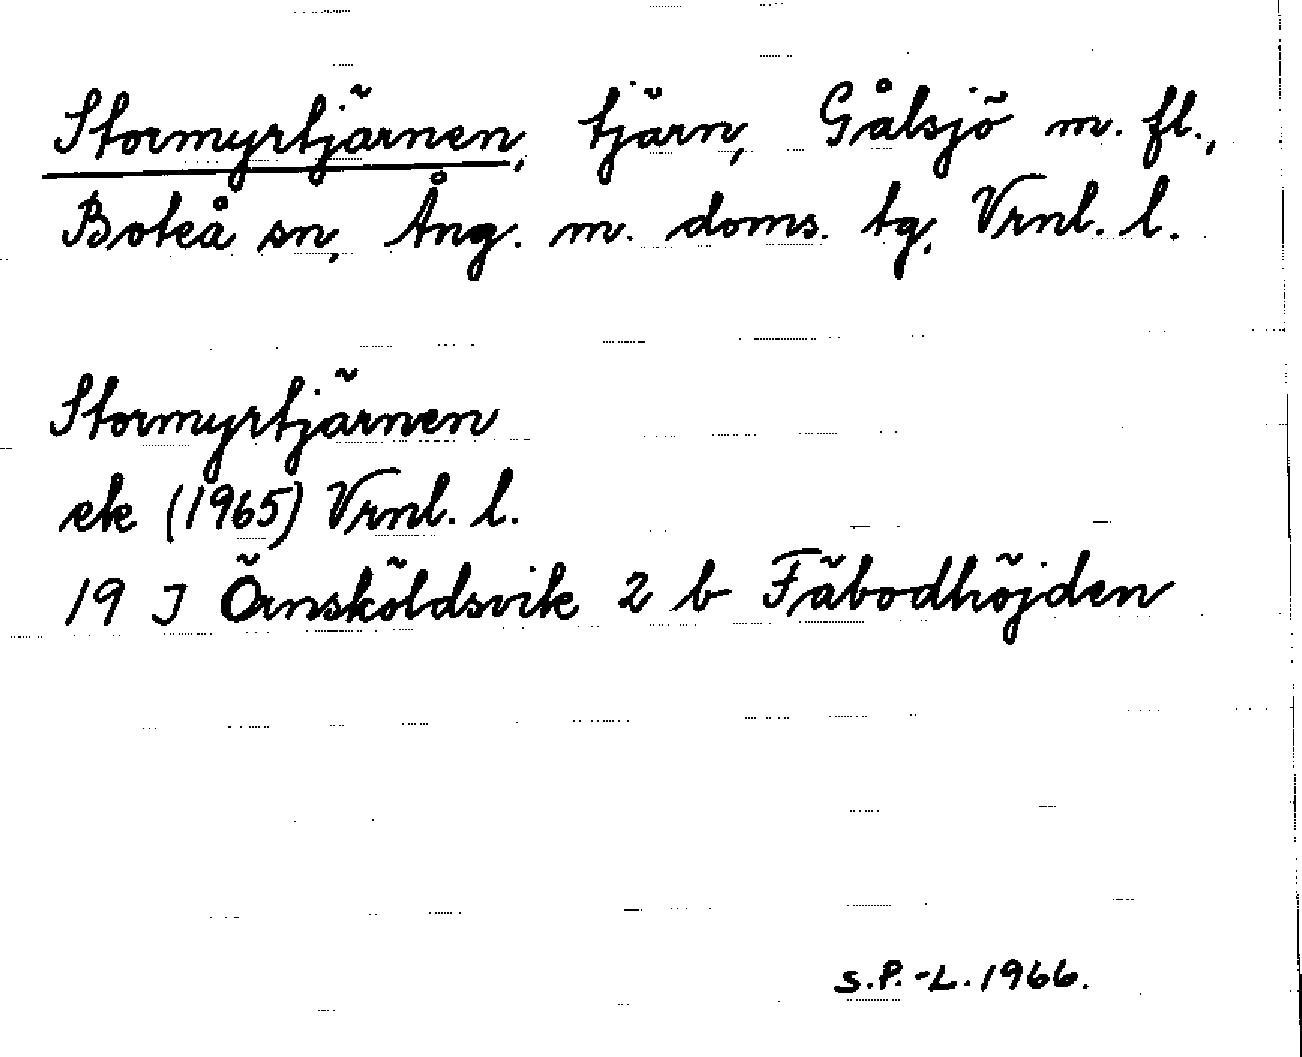 Stormyrtjärnen, tjärn, Gålsjö m. fl.,
Boteå sn, Ång. m. doms. tg, Vrnl. l.
Stormyrtjärnen
ek (1965) Vrnl. l.
19 J Örnsköldsvik 2 b Fäbodhöjden
S.P.-L. 1966.